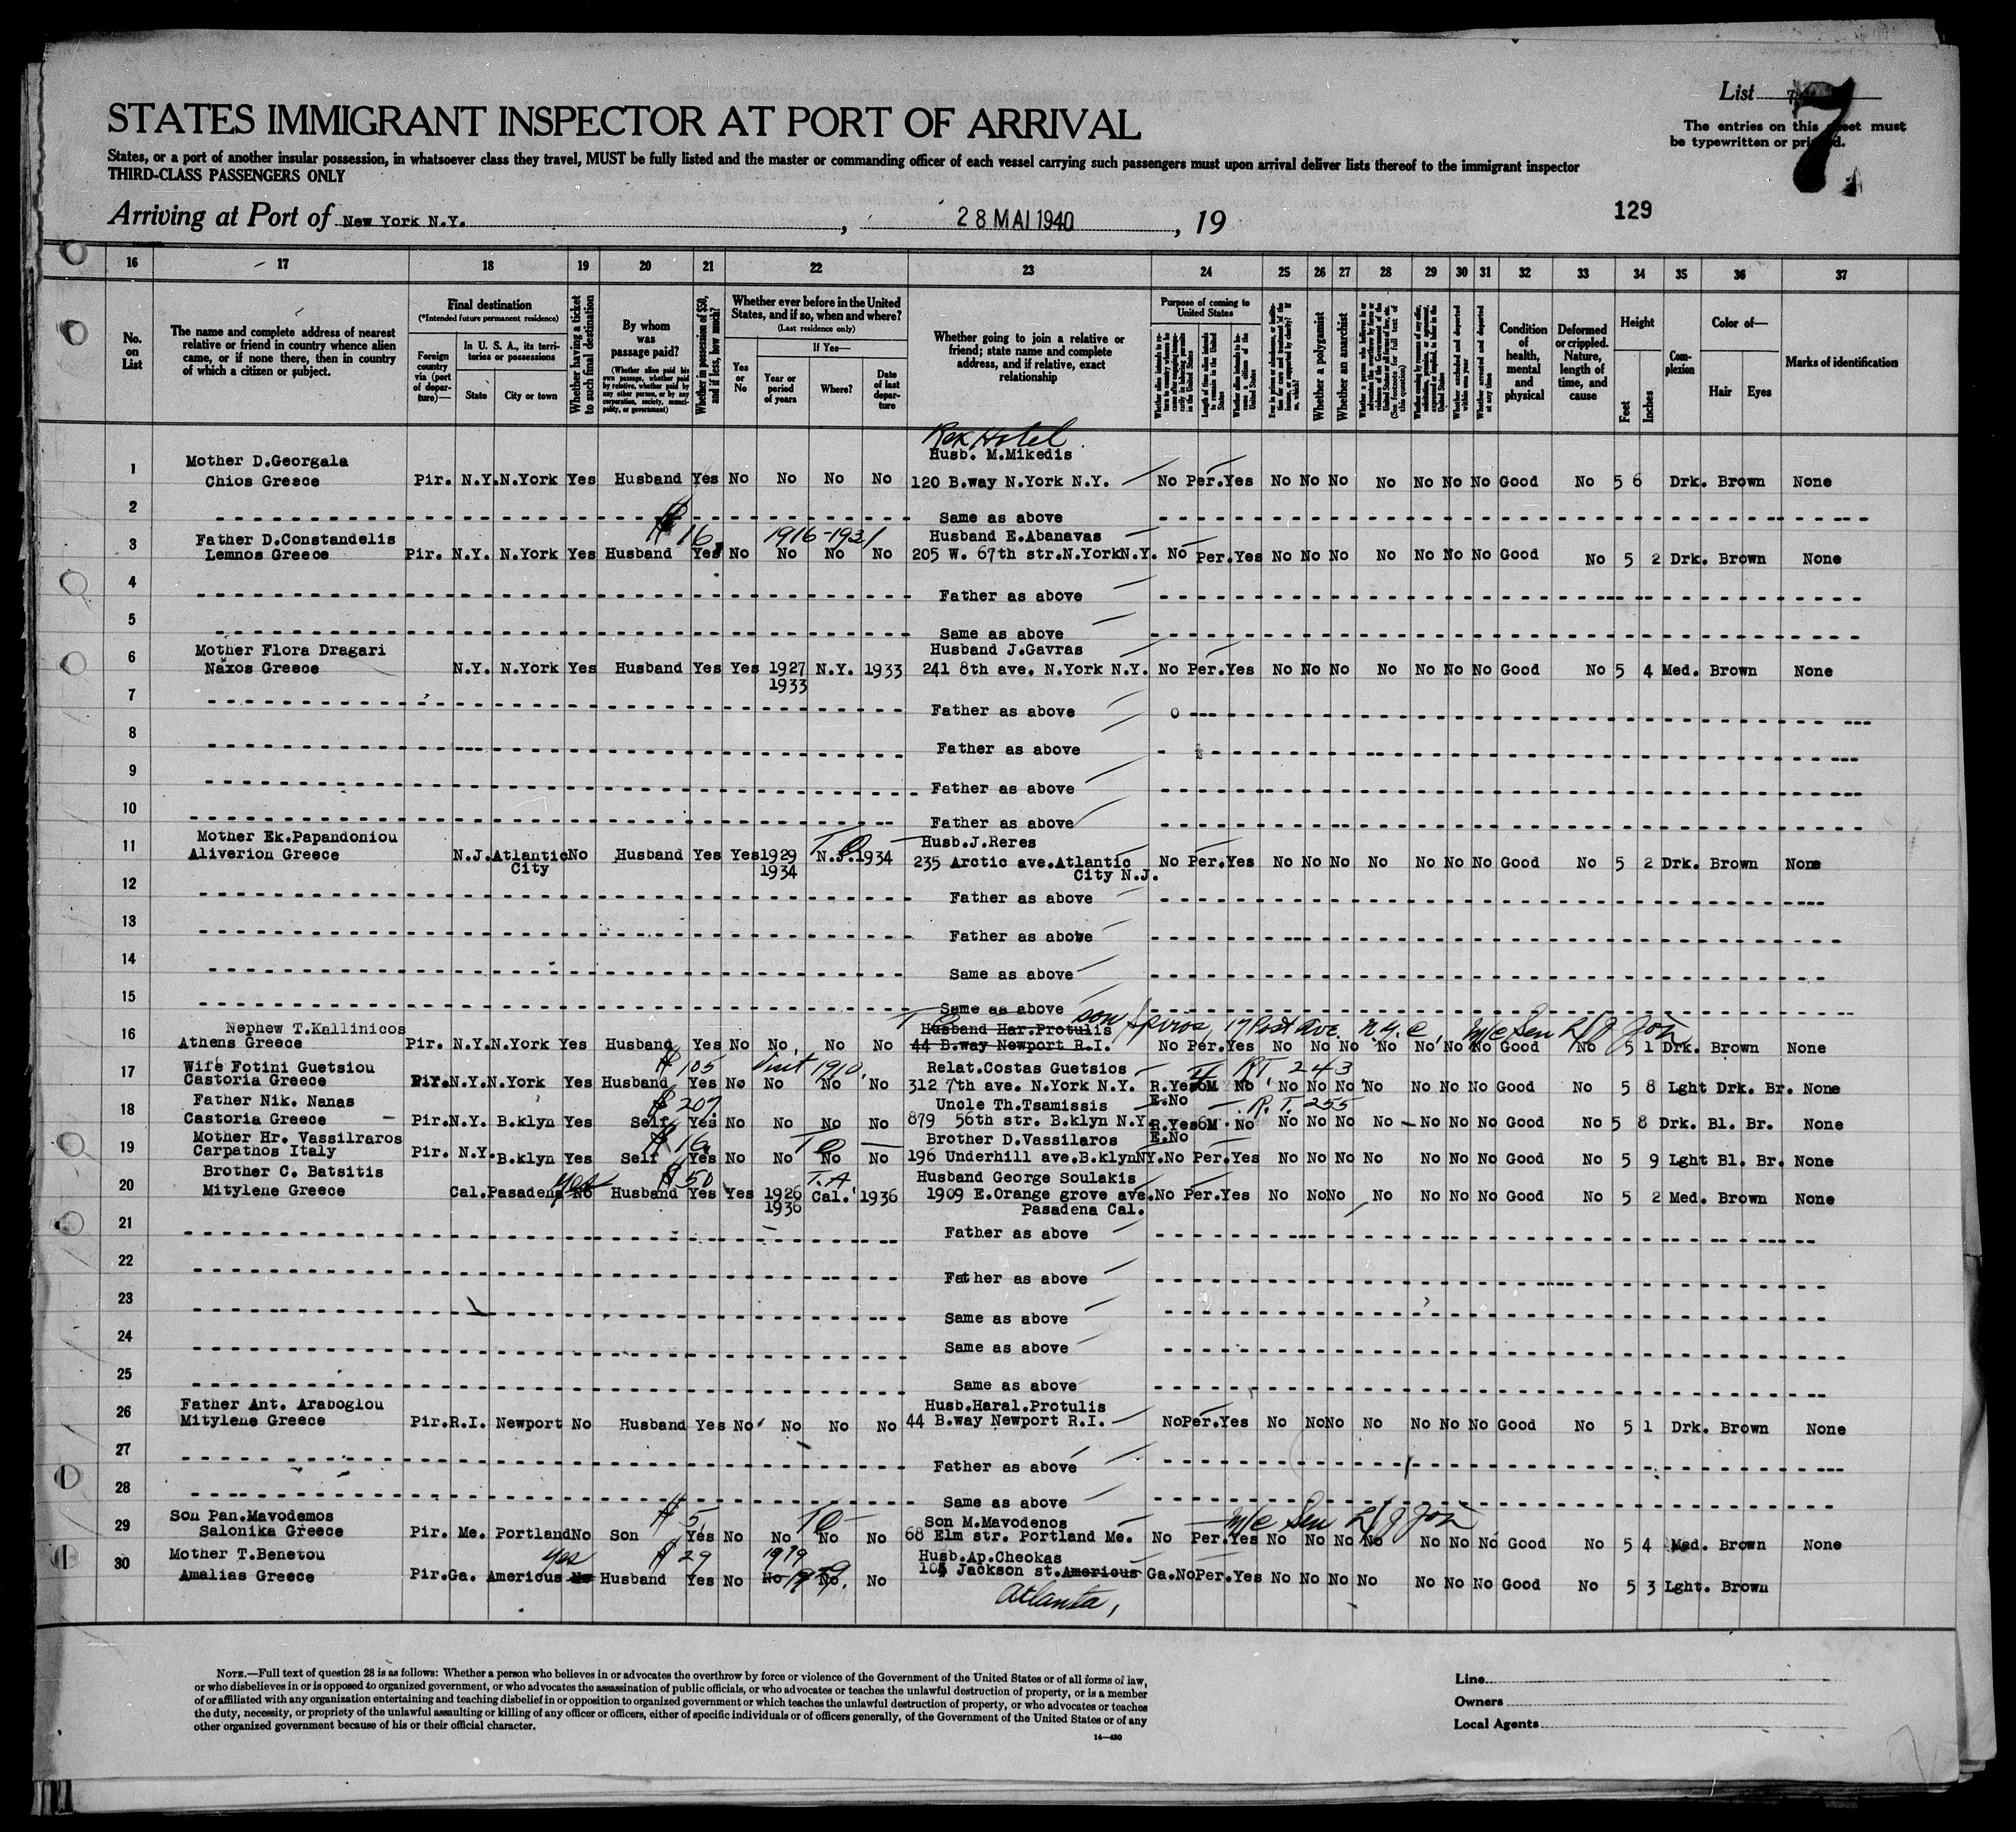 List 7
7
The entries on this sheet must
be typewritten or printed.
STATES IMMIGRANT INSPECTOR AT PORT OF ARRIVAL
States, or a port of another insular possession, in whatsoever class they travel, MUST be fully listed and the master or commanding officer of each vessel carrying such passengers must upon arrival deliver lists thereof to the immigrant inspector
THIRD-CLASS PASSENGERS ONLY
Arriving at Port of New York N.Y. , 28 MAI 1940 , 19
129
16 17 18 19 20 21 22 23 24 25 26 27 28 29 30 31 32 33 34 35 36 37
No. on List
The name and complete address of nearest relative or friend in country whence alien came, or if none there, then in country of which a citizen or subject.
Final destination
(*Intended future permanent residence)
Foreign country via (port of departure)—
In U. S. A., its territories or possessions
State City or town
Whether having a ticket to such final destination
By whom was passage paid?
(Whether alien paid his own passage, whether paid by relative, whether paid by any other person, or by any corporation, society, municipality, or government)
Whether in possession of $50, and if less, how much?
Whether ever before in the United States, and if so, when and where?
(Last residence only)
Yes or No
If Yes—
Year or period of years
Where?
Date of last departure
Whether going to join a relative or friend; state name and complete address, and if relative, exact relationship
Purpose of coming to United States
Whether a polygamist
Whether an anarchist
Whether excluded and deported within one year
Whether arrested and deported at any time
Condition of health, mental and physical
Deformed or crippled. Nature, length of time, and cause
Height
Feet Inches
Complexion
Color of—
Hair Eyes
Marks of identification
Rex Hotel
1 Mother D.Georgala Husb. M.Mikedis
Chios Greece Pir. N.Y. N.York Yes Husband Yes No No No No 120 B.way N.York N.Y. No Per. Yes No No No No No No No Good No 5 6 Drk. Brown None
2 Same as above
3 Father D.Constandelis $16 1916-1931 Husband E.Abanavas
Lemnos Greece Pir. N.Y. N.York Yes Husband Yes No No No No 205 W. 67th str.N.YorkN.Y. No Per.Yes No No No No No No No Good No 5 2 Drk. Brown None
4 Father as above
5 Same as above
6 Mother Flora Dragari Husband J.Gavras
Naxos Greece N.Y. N.York Yes Husband Yes Yes 1927 N.Y. 1933 241 8th ave. N.York N.Y. No Per.Yes No No No No No No No Good No 5 4 Med. Brown None
1933
7 Father as above
8 Father as above
9 Father as above
10 Father as above
11 Mother Ek.Papandoniou Husb.J.Reres
Aliverion Greece N.J. Atlantic No Husband Yes Yes 1929 N.J. 1934 235 Arctic ave.Atlantic No Per.Yes No No No No No No No Good No 5 2 Drk. Brown None
City 1934 City N.J.
12 Father as above
13 Father as above
14 Same as above
15 Same as above
16 Nephew T.Kallinicos Husband Har.Protulis son Spiros, 17 Post Ave. N.Y.C,
Athens Greece Pir. N.Y. N.York Yes Husband Yes No No No No 44 B.way Newport R.I. No Per.Yes No No No No No No No Good No 5 1 Drk. Brown None
17 Wife Fotini Guetsiou $105 Visit 1910. Relat.Costas Guetsios RT. 243
Castoria Greece Pir. N.Y. N.York Yes Husband Yes No No No No 312 7th ave. N.York N.Y. R.Yes 6M No No No No No No No No Good No 5 8 Lght Drk. Br. None
E.No
18 Father Nik. Nanas $207 Uncle Th.Tsamissis R.T. 255
Castoria Greece Pir. N.Y. B.klyn Yes Self Yes No No No No 879 56th str. B.klyn N.Y. R.Yes 6M No No No No No No No No Good No 5 8 Drk. Bl. Br. None
E.No
19 Mother Hr. Vassilraros $16 Brother D.Vassilaros
Carpathos Italy Pir. N.Y. B.klyn Yes Self Yes No No No No 196 Underhill ave.B.klynNY. No Per.Yes No No No No No No No Good No 5 9 Lght Bl. Br. None
20 Brother C. Batsitis yes $50 T.A Husband George Soulakis
Mitylene Greece Cal. Pasadena No Husband Yes Yes 1926 Cal. 1936 1909 E.Orange grove ave. No Per.Yes No No No No No No No Good No 5 2 Med. Brown None
1936 Pasadena Cal.
21 Father as above
22 Father as above
23 Same as above
24 Same as above
25 Same as above
26 Father Ant. Araboglou Husb.Haral.Protulis
Mitylene Greece Pir. R.I. Newport No Husband Yes No No No No 44 B.way Newport R.I. No Per.Yes No No No No No No No Good No 5 1 Drk. Brown None
27 Father as above
28 Same as above
29 Son Pan.Mavodemos $5 Son M.Mavodenos
Salonika Greece Pir. Me. Portland No Son Yes No No No No 68 Elm str. Portland Me. No Per.Yes No No No No No No No Good No 5 4 Med. Brown None
30 Mother T.Benetou yes $29 Husb.Ap.Cheokas
Amalias Greece Pir. Ga. Americus No Husband Yes No No No No Jackson st.Americus Ga. No Per.Yes No No No No No No No Good No 5 3 Lght. Brown
Atlanta,
NOTE.—Full text of question 28 is as follows: Whether a person who believes in or advocates the overthrow by force or violence of the Government of the United States or of all forms of law,
or who disbelieves in or is opposed to organized government, or who advocates the assassination of public officials, or who advocates or teaches the unlawful destruction of property, or is a member
of or affiliated with any organization entertaining and teaching disbelief in or opposition to organized government or which teaches the unlawful destruction of property, or who advocates or teaches
the duty, necessity, or propriety of the unlawful assaulting or killing of any officer or officers, either of specific individuals or of officers generally, of the Government of the United States or of any
other organized government because of his or their official character.
14—430
Line
Owners
Local Agents